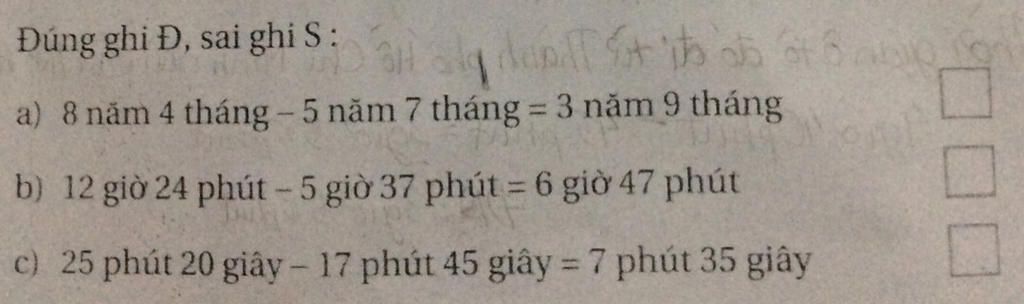 Đúng ghi Đ, sai ghi S :
a) 8 năm 4 tháng – 5 năm 7 tháng = 3 năm 9 tháng
b) 12 giờ 24 phút – 5 giờ 37 phút = 6 giờ 47 phút
c) 25 phút 20 giây – 17 phút 45 giây = 7 phút 35 giây